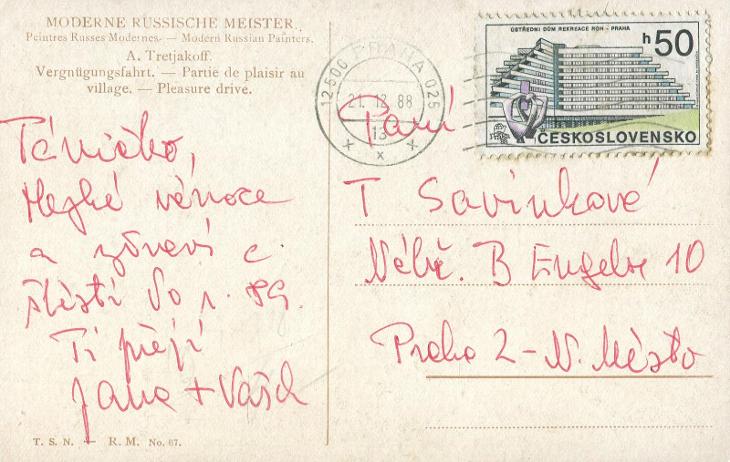 MODERNE RUSSISCHE MEISTER.
Peintres Russes Modernes. — Modern Russian Painters.
A. Tretjakoff.
Vergnügungsfahrt. — Partie de plaisir au
village. — Pleasure drive.
12500 PRAHA 025
21. 12. 88
13
x x x
ÚSTŘEDNÍ DŮM REKREACE ROH - PRAHA
h50
ČESKOSLOVENSKO
Táničko,
Hezké vánoce
a zdraví a
štěstí do r. 89.
Ti přejí
Jana + Vašek
Paní
T Savinková
Nábř. B Engelse 10
Praha 2 - N. Město
T. S. N. — R. M. No. 67.